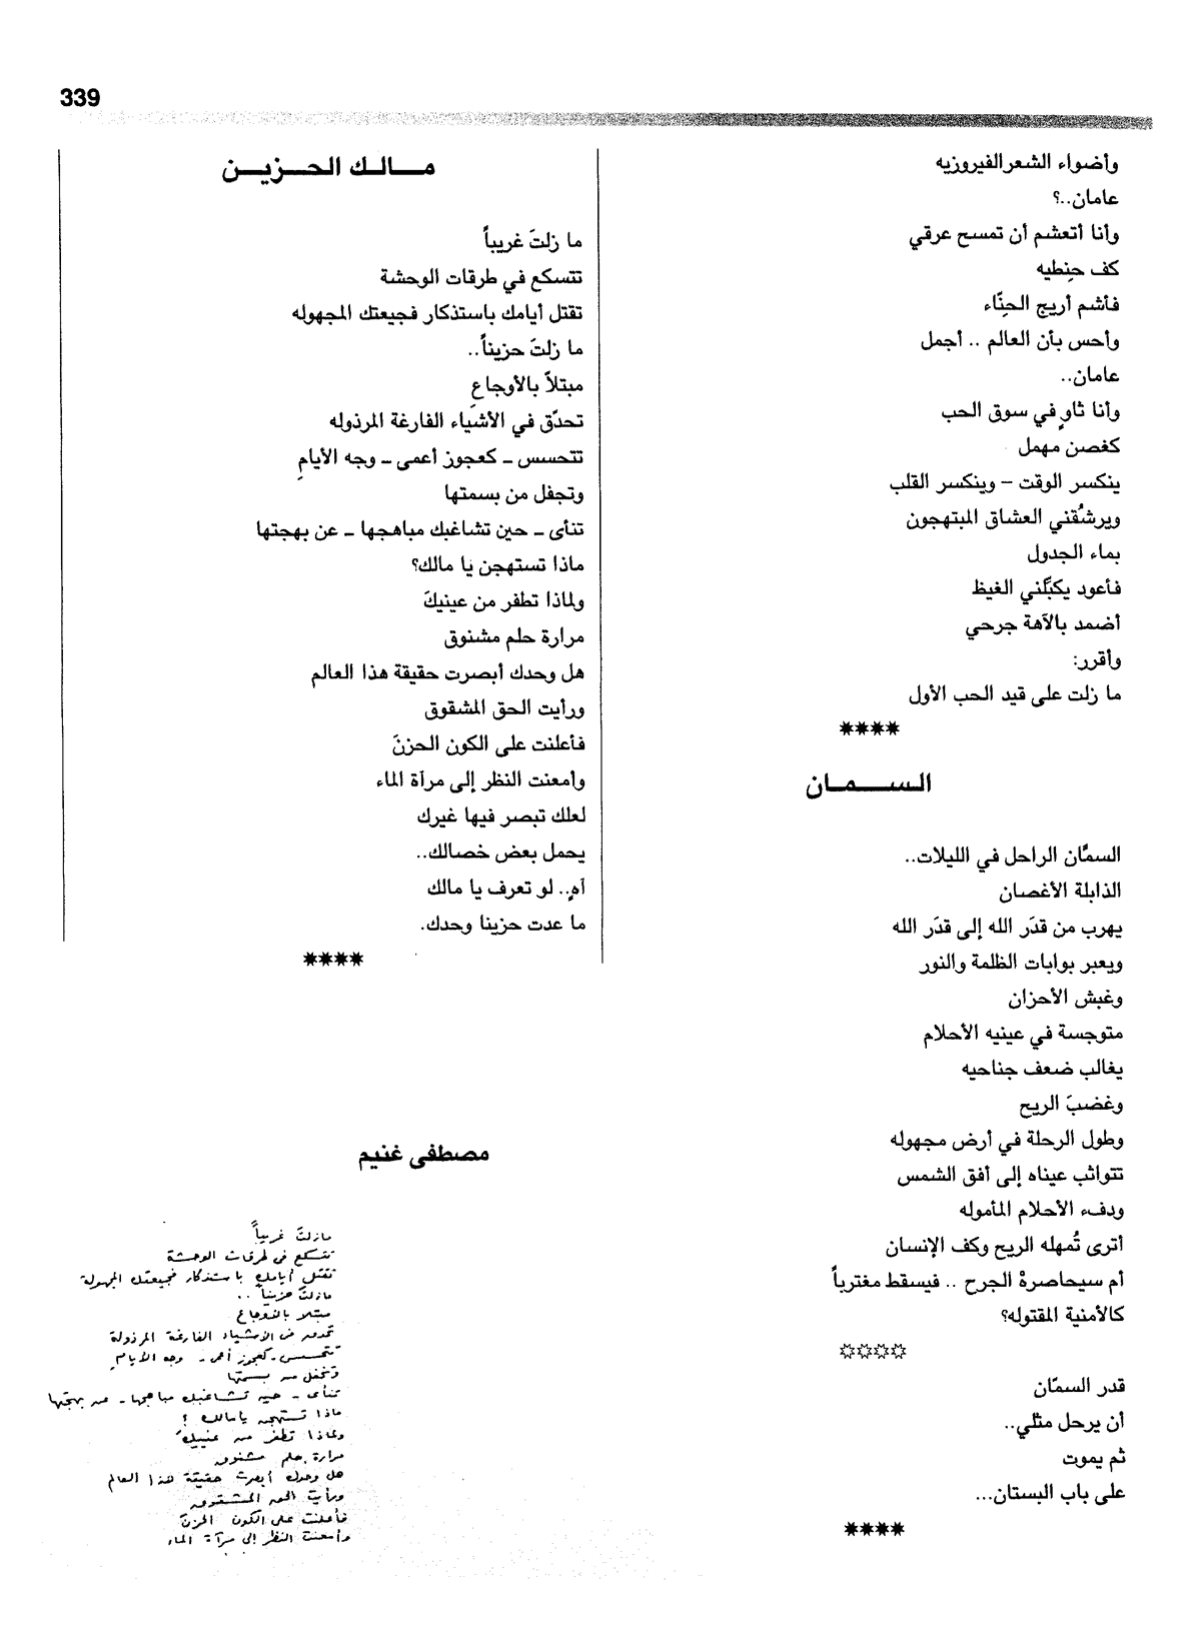 339
وأضواء الشعر الفيروزيه
عامان..؟
وأنا أتعشم أن تمسح عرقي
كف حنِطيه
فأشم أريج الحِنّاء
وأحس بأن العالم .. أجمل
عامان..
وأنا ثاوٍ في سوق الحب
كغصن مهمل
ينكسر الوقت – وينكسر القلب
ويرشُقني العشاق المبتهجون
بماء الجدول
فأعود يكبَّلني الغيظ
أضمد بالآهة جرحي
وأقرر:
ما زلت على قيد الحب الأول
****
الســـمـان
السمَّان الراحل في الليلات..
الذابلة الأغصان
يهرب من قدَر الله إلى قدَر الله
ويعبر بوابات الظلمة والنور
وغبش الأحزان
متوجسة في عينيه الأحلام
يغالب ضعف جناحيه
وغضبَ الريح
وطول الرحلة في أرض مجهوله
تتواثب عيناه إلى أفق الشمس
ودفء الأحلام المأموله
أترى تُمهله الريح وكف الإنسان
أم سيحاصرهْ الجرح .. فيسقط مغترباً
كالأمنية المقتوله؟
☼☼☼☼
قدر السمّان
أن يرحل مثلي..
ثم يموت
على باب البستان...
****
مـــالـك الحــزيــن
ما زلتَ غريباً
تتسكع في طرقات الوحشة
تقتل أيامك باستذكار فجيعتك المجهوله
ما زلتَ حزيناً..
مبتلاً بالأوجاعِ
تحدّق في الأشياء الفارغة المرذوله
تتحسس ـ كعجوز أعمى ـ وجه الأيامِ
وتجفل من بسمتها
تنأى ـ حين تشاغبك مباهجها ـ عن بهجتها
ماذا تستهجن يا مالك؟
ولماذا تطفر من عينيكَ
مرارة حلم مشنوق
هل وحدك أبصرت حقيقة هذا العالم
ورأيت الحق المشقوق
فأعلنت على الكون الحزنَ
وأمعنت النظر إلى مرآة الماء
لعلك تبصر فيها غيرك
يحمل بعض خصالك..
آهٍ.. لو تعرف يا مالك
ما عدت حزينا وحدك.
****
مصطفى غنيم
مازلتَ غريباً
تتسكع في طرقات الوحشة
تقتل أيامك باستذكار فجيعتك المجهولة
مازلتَ حزيناً ..
مبتلا بالأوجاع
تحدق في الأشياء الفارغة المرذولة
تتحسس ـ كعجوز أعمى ـ وجه الأيامِ
وتجفل من بسمتها
تنأى ـ حين تشاغبك مباهجها ـ عن بهجتها
ماذا تستهجن يا مالك ؟
ولماذا تطفر من عينيكَ
مرارة حلم مشنوق
هل وحدك أبصرت حقيقة هذا العالم
ورأيت الحق المشقوق
فأعلنت على الكون الحزنَ
وأمعنت النظر إلى مرآة الماء